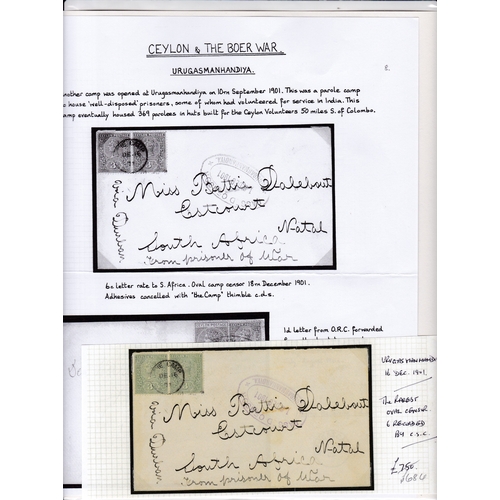 CEYLON & THE BOER WAR.
URUGASMANHANDIYA.
nother camp was opened at Urugasmanhandiya on 10th September 1901. This was a parole camp
o house 'well-disposed' prisoners, some of whom had volunteered for service in India. This
amp eventually housed 369 parolees in huts built for the Ceylon Volunteers 50 miles S. of Colombo.
Miss Bettie Dalebout
Estcourt
Natal
South Africa
From prisoner of War
via Durban
6c letter rate to S. Africa. Oval camp censor 18th December 1901.
Adhesives cancelled with "the Camp" thimble c.d.s.
1d letter from O.R.C. forwarded
Miss Bettie Dalebout
Estcourt
Natal
South Africa
From prisoner of War
via Durban
URUGASMANHANDI
16 DEC. 1901
The RAREST
OVAL CENSOR
6 RECORDED
BY C.S.C
£750